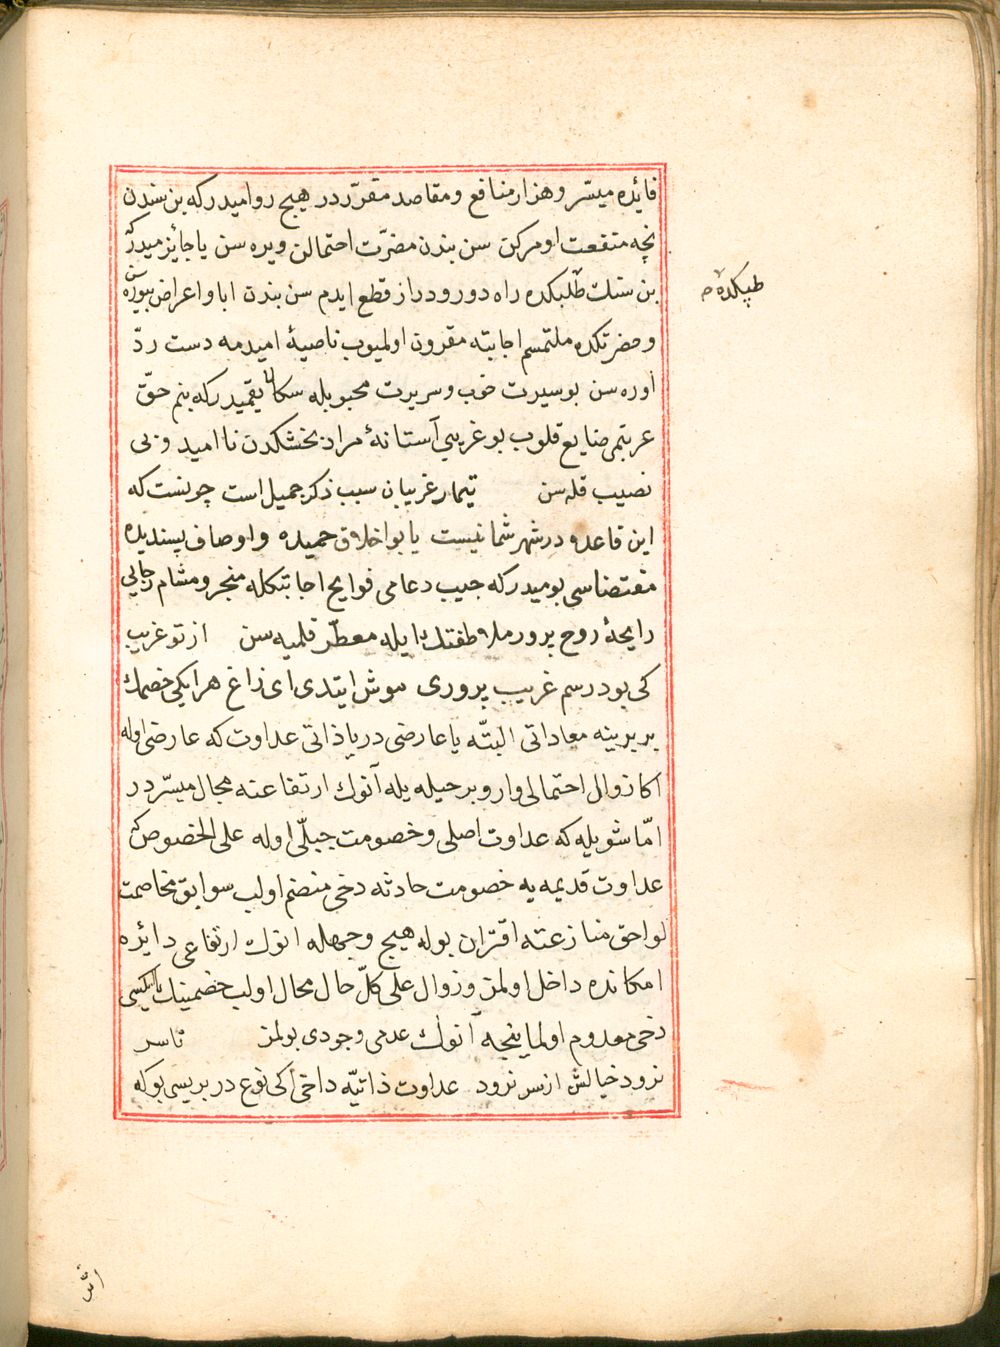 فائده ميسّر و هزار منافع و مقاصد مقرّر در هيچ روا ميدر كه بن سندن
نچه منفعت اومركن سن بندن مضرّت احتمالن ويره سن يا جائز ميدر كه
بن سنك طلبكده راه دور و دراز قطع ايدم سن بندن ابا و اعراض بيوره سن
و حضرتكده ملتمسم اجابته مقرون اولميوب ناصيۀ اميدمه دست ردّ
اوره سن بو سيرت خوب و سريرت محبوبله سكا لايقميدر كه بنم حقّ
غربتمى ضايع قلوب بو غريبى آستانۀ مراد بخشكدن نا اميد و بى
نصيب قله سن تيمار غريبان سبب ذكر جميل است چونست كه
اين قاعده در شهر شما نيست يا بو اخلاق حميده و اوصاف پسنديده
مقتضاسى بوميدر كه جيب دعامى فوايح اجابتكله منجر و مشام رجايى
رايحۀ روح پرور ملاطفتك ايله معطّر قلميه سن از تو غريب
كى بود رسم غريب پرورى موش ايتدى اى زاغ هر ايكى خصمك
بربرينه معاداتى البتّه يا عارضى در يا ذاتى عداوت كه عارضى اوله
اكا زوال احتمالى وار و بر حيله يله آنوك ارتفاعنه مجال ميسّر در
امّا شويله كه عداوت اصلى و خصومت جبلّى اوله على الخصوص كه
عداوت قديمه يه خصومت حادثه دخى منضم اولب سوابق مخاصمت
لواحق منازعته اقتران بوله هيچ وجهله انوك ارتفاعى دائره
امكانده داخل اولمز و زوال على كلّ حال محال اولب خصمينك ايكيسى
دخى معدوم اولماينجه آنوك عدمى وجودى بولمز تا سر
نرود خيالش از سر نرود عداوت ذاتيّه داخى ايكى نوع در بريسى بو كه
طلبكده م